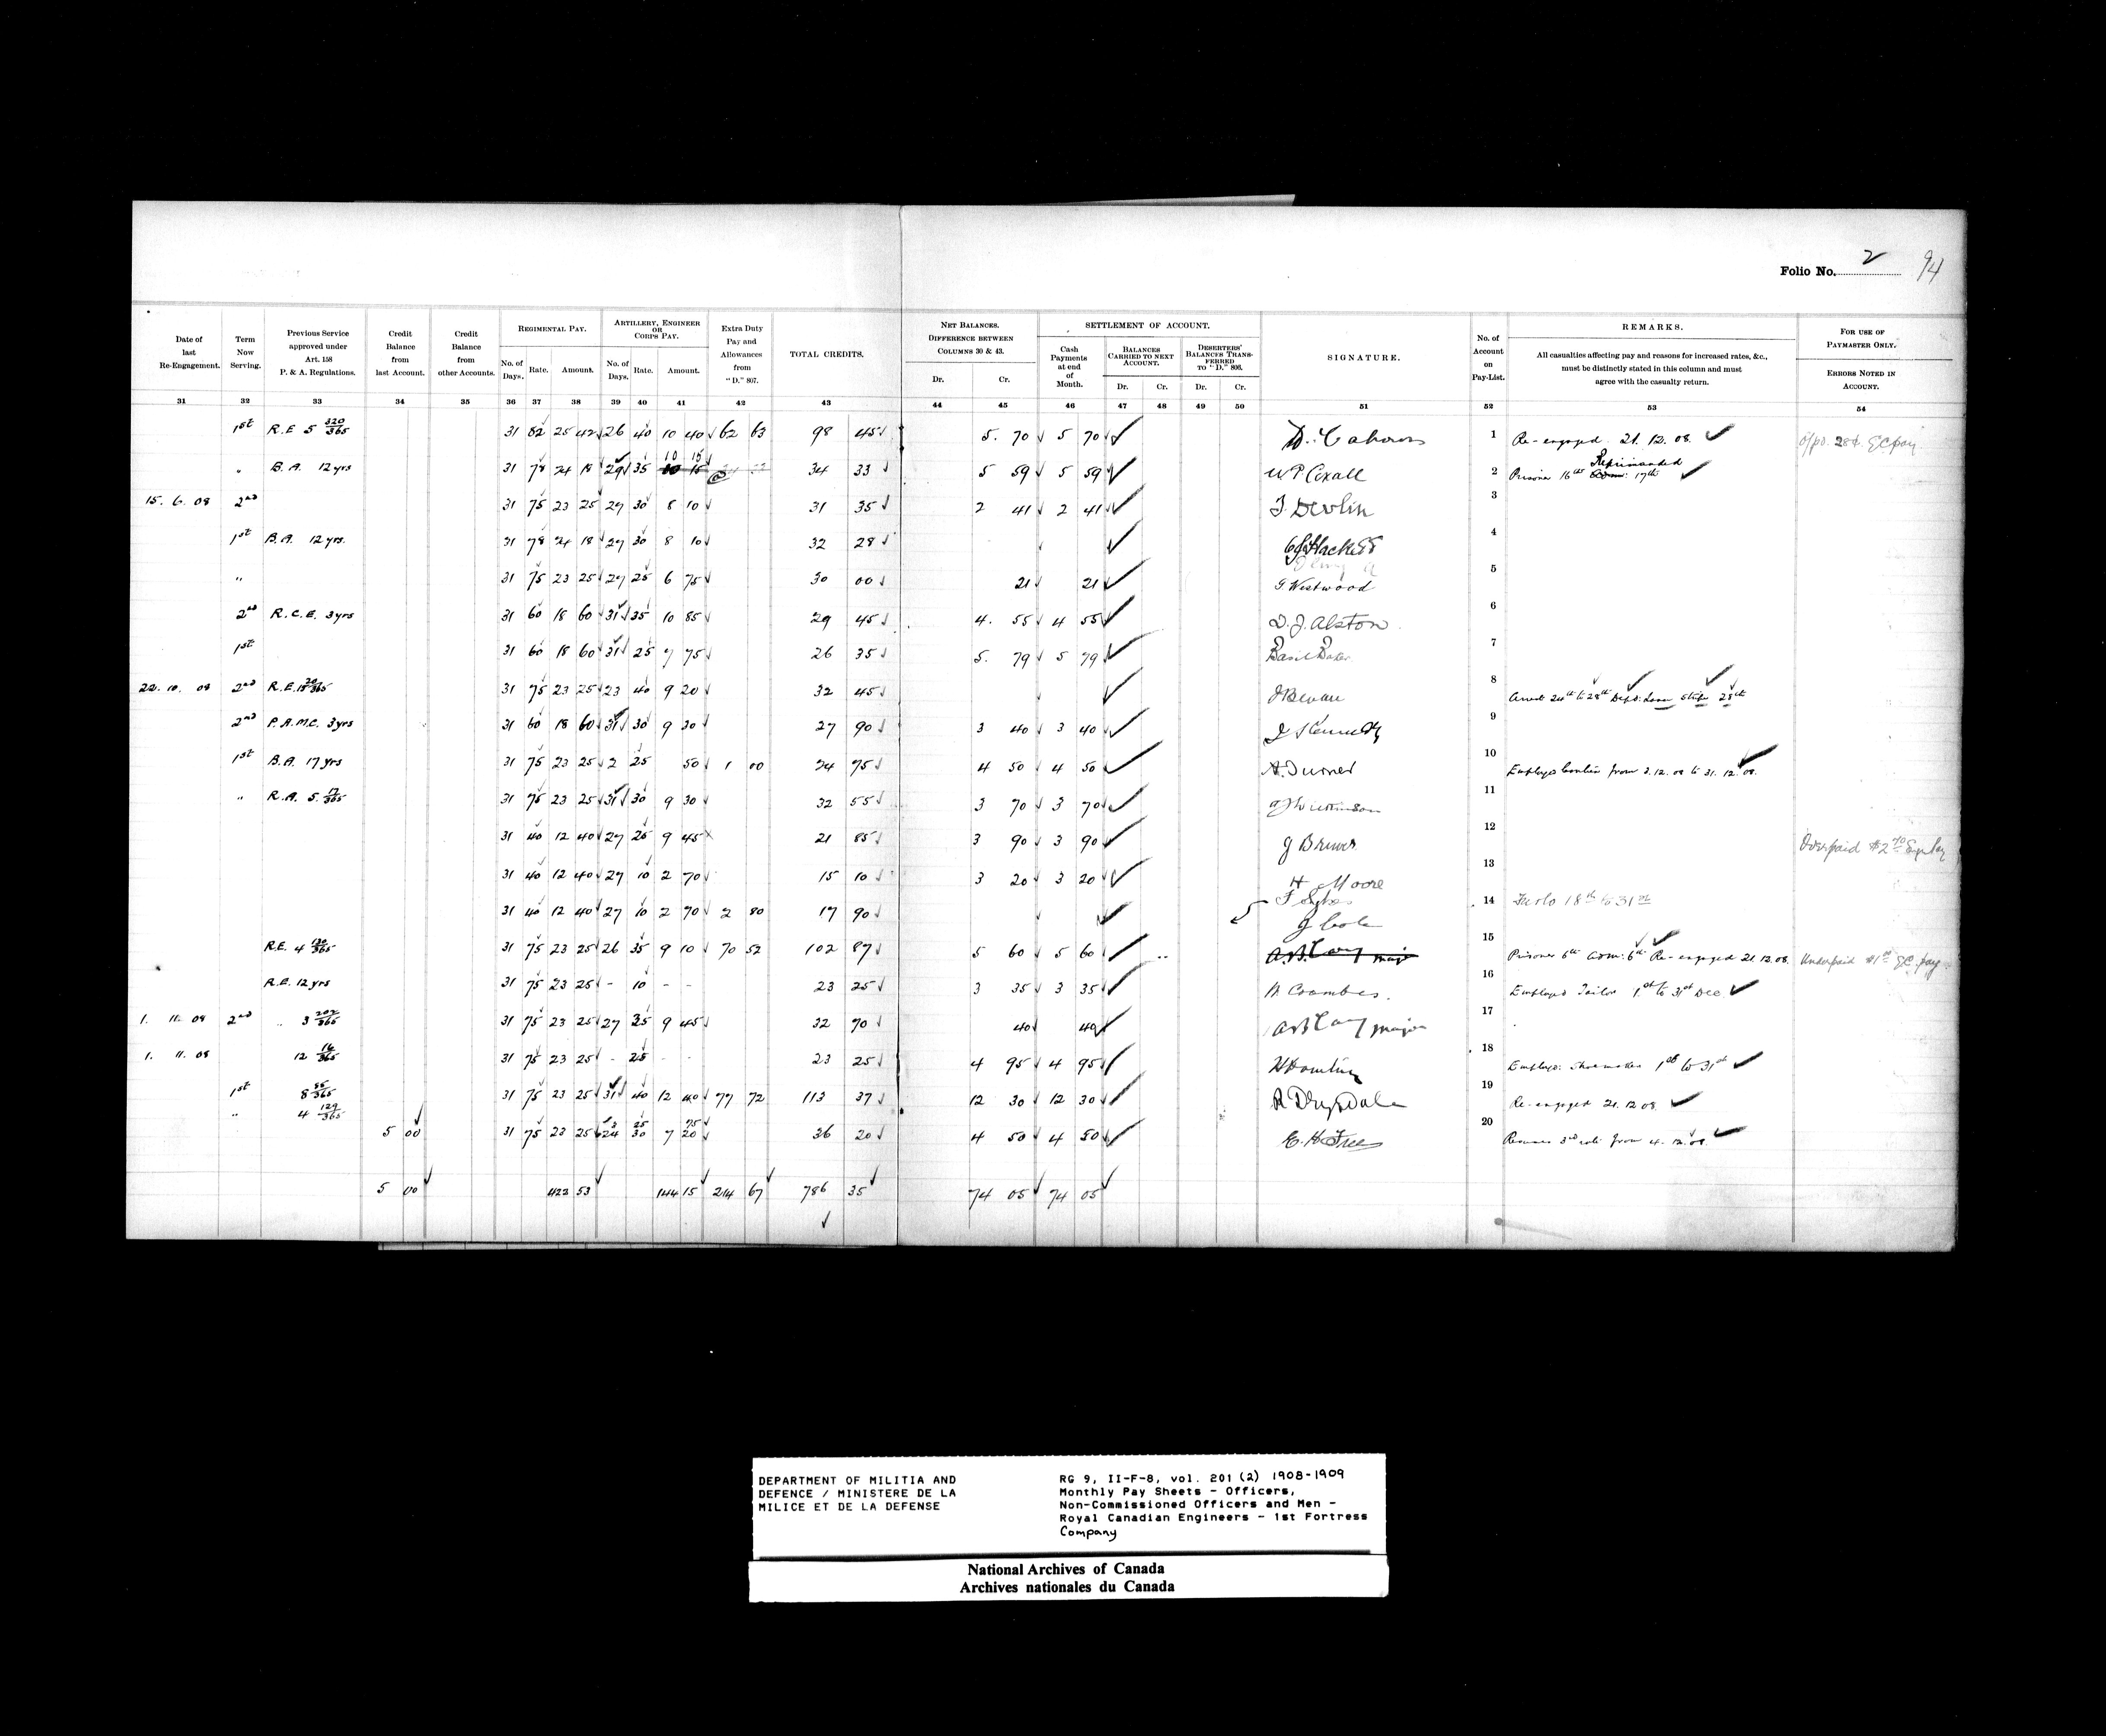 Folio No. 2 94
Date of last Re-Engagement. Term Now Serving. Previous Service approved under Art. 158 P. & A. Regulations. Credit Balance from last Account. Credit Balance from other Accounts. REGIMENTAL PAY. No. of Days. Rate. Amount. ARTILLERY, ENGINEER OR CORPS PAY. No. of Days. Rate. Amount. Extra Duty Pay and Allowances from "D." 807. TOTAL CREDITS. NET BALANCES. DIFFERENCE BETWEEN COLUMNS 30 & 43. Dr. Cr. SETTLEMENT OF ACCOUNT. Cash Payments at end of Month. BALANCES CARRIED TO NEXT ACCOUNT. Dr. Cr. DESERTERS' BALANCES TRANSFERRED TO "D." 808. Dr. Cr. SIGNATURE. No. of Account on Pay-List. REMARKS. All casualties affecting pay and reasons for increased rates, &c., must be distinctly stated in this column and must agree with the casualty return. FOR USE OF PAYMASTER ONLY. ERRORS NOTED IN ACCOUNT.
31 32 33 34 35 36 37 38 39 40 41 42 43 44 45 46 47 48 49 50 51 52 53 54
1st R.E 5 320/365 31 82 25 42 26 40 10 40 62 63 98 45 5. 70 5 70 1 Re-engaged 21. 12. 08.
" B.A. 12 yrs 31 78 24 18 29 35 10 15 34 33 5 59 5 59 W P Coxall 2 Prisoner 16th Reprimanded 17th
15. 6. 08 2nd 31 75 23 25 27 30 8 10 31 35 2 41 2 41 J. Devlin 3
1st B.A. 12 yrs. 31 78 24 18 27 30 8 10 32 28 Hackett 4
" 31 75 23 25 27 25 6 75 30 00 21 21 G. Westwood 5
2nd R.C.E. 3 yrs 31 60 18 60 31 35 10 85 29 45 4. 55 4 55 D. J. Alston 6
1st 31 60 18 60 31 25 7 75 26 35 5. 79 5 79 Basil Baker 7
22. 10. 08 2nd R.E. 31 75 23 25 23 40 9 20 32 45 J Bevan 8 Arrest 24th to 28th
2nd P.A.M.C. 3 yrs 31 60 18 60 31 30 9 30 27 90 3 40 3 40 J Kennedy 9
1st B.A. 17 yrs 31 75 23 25 2 25 50 1 00 24 75 4 50 4 50 A. Turner 10 Employed Canteen from 3. 12. 08 to 31. 12. 08.
" R.A. 5 17/365 31 75 23 25 31 30 9 30 32 55 3 70 3 70 11
31 40 12 40 27 25 9 45 21 85 3 90 3 90 J Brewer 12 Overpaid $2 70 Engr Pay
31 40 12 40 27 10 2 70 15 10 3 20 3 20 H Moore 13
31 40 12 40 27 10 2 70 2 80 17 90 J Cole 14 Furlo 18th to 31st
R.E. 4 130/365 31 75 23 25 26 35 9 10 70 52 102 87 5 60 5 60 15 Prisoner 6th adm: 6th Re-engaged 21. 12. 08. Underpaid $1 G.C. pay
R.E. 12 yrs 31 75 23 25 - 10 - - 23 25 3 35 3 35 Coombes. 16 Employed Tailor 1st to 31st Dec
1. 11. 08 2nd " 3 202/365 31 75 23 25 27 35 9 45 32 70 40 40 major 17
1. 11. 08 12 16/365 31 75 23 25 - 25 - - 23 25 4 95 4 95 18 Employed. Shoemaker 1st to 31st
1st 8 55/365 31 75 23 25 31 40 12 40 77 72 113 37 12 30 12 30 R Drysdale 19 Re-engaged 21. 12 08
" 4 129/365 5 00 31 75 23 25 3 25 75 24 30 7 20 36 20 4 50 4 50 E. H. Free 20 from 4. 12. 08.
5 00 422 53 144 15 214 67 786 35 74 05 74 05
DEPARTMENT OF MILITIA AND
DEFENCE / MINISTERE DE LA
MILICE ET DE LA DEFENSE
RG 9, II-F-8, vol. 201 (2) 1908-1909
Monthly Pay Sheets - Officers,
Non-Commissioned Officers and Men -
Royal Canadian Engineers - 1st Fortress
Company
National Archives of Canada
Archives nationales du Canada